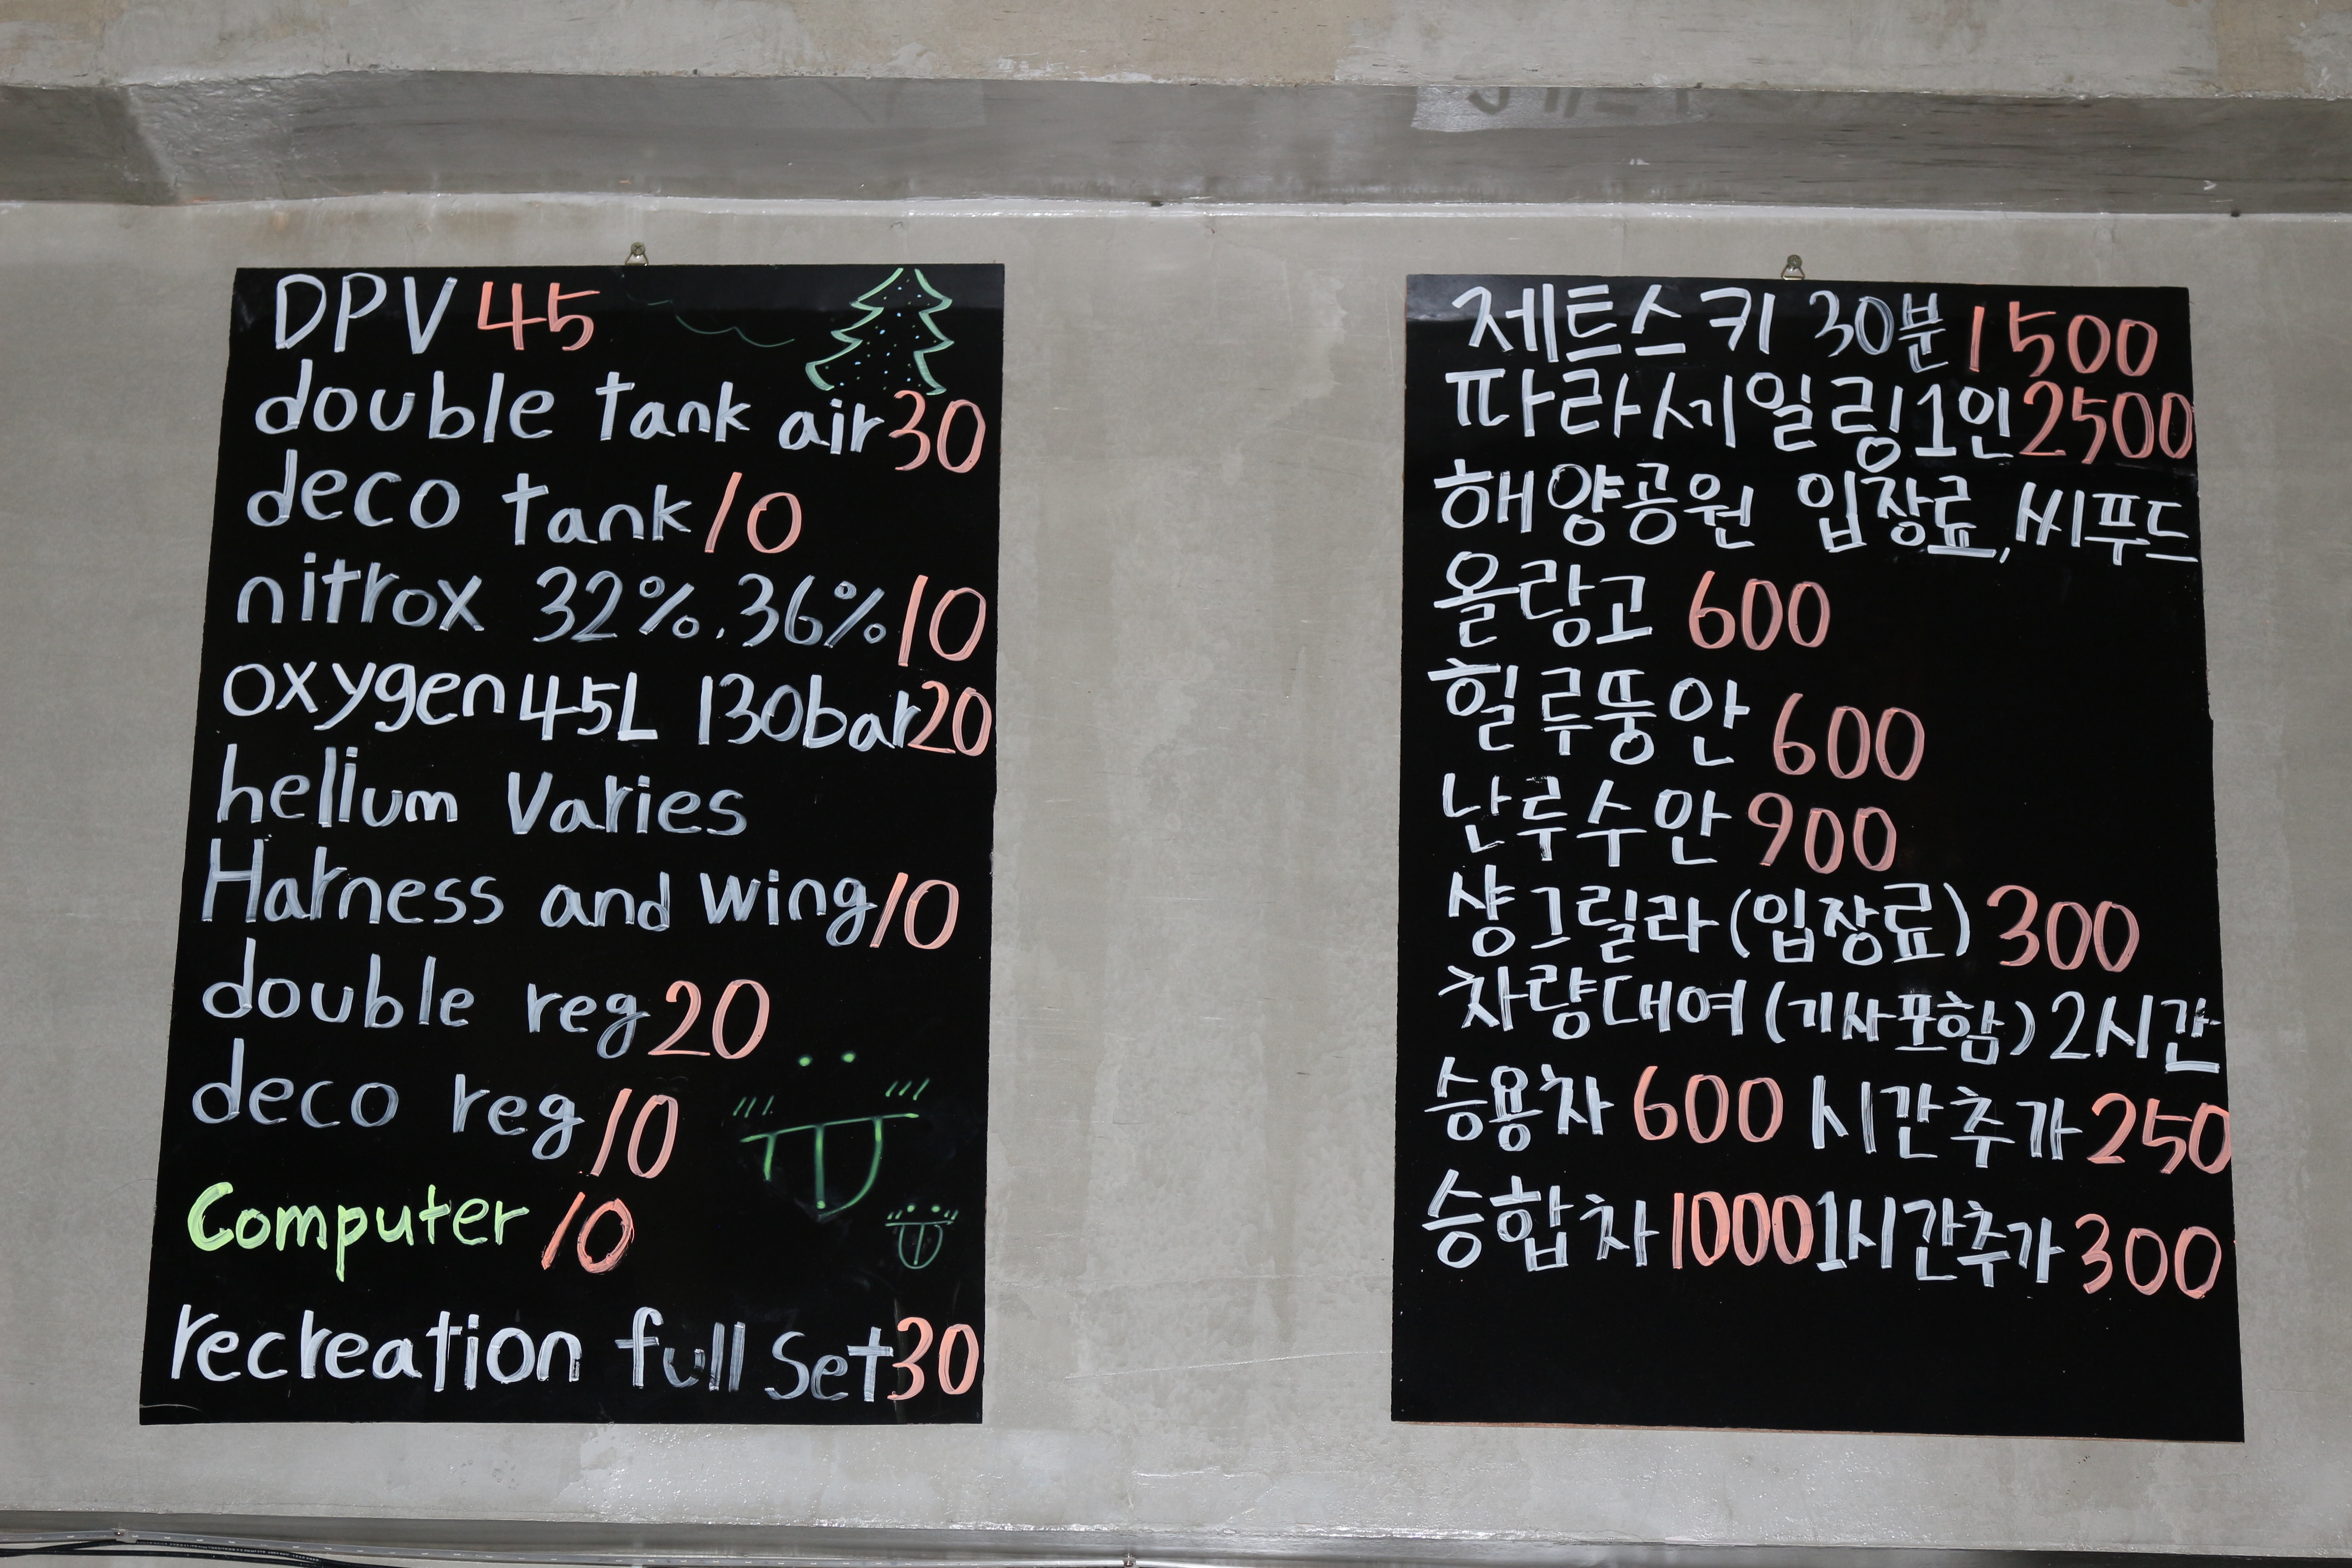 DPV 45
double tank air 30
deco tank 10
nitrox 32%.36% 10
oxygen 45L 130bar 20
helium Varies
Harness and wing 10
double reg 20
deco reg 10
Computer 10
recreation full Set 30
제트스키 30분 1500
파라세일링 1인 2500
해양공원 입장료, 씨푸드
올랑고 600
힐루뚱안 600
난루수안 900
샹그릴라 (입장료) 300
차량대여 (기사포함) 2시간
승용차 600 시간추가 250
승합차 1000 1시간추가 300